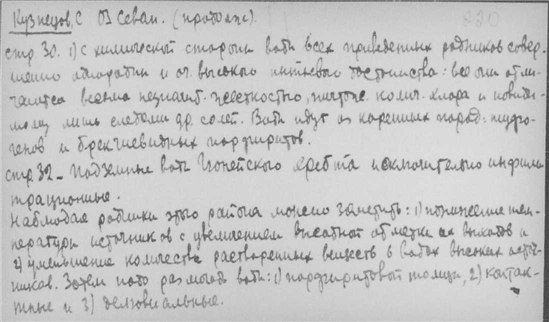 Кузнецов, С  Оз Севан. (продолж).
стр 30. 1) С химической стороны воды всех приведенных родников совер-
шенно однородны и оч. высокого питьевого достоинства: все они отли-
чаются весьма незначит. жесткостью, ничтож. колич. хлора и
лишь следами др. солей. Воды идут из коренных пород:
и брекчиевидных порфиритов.
стр 32 - Подземные воды хребта исключительно инфильт
трационные.
Наблюдая родники этого района можно заметить: 1) понижение тем-
пературы источников с увеличением высотной отметки их выходов и
2) уменьшение количества растворенных веществ в водах высоких источ-
ников. Затем надо различать воды: 1) порфиритовой толщи, 2) контак-
тные и 3) делювиальные.